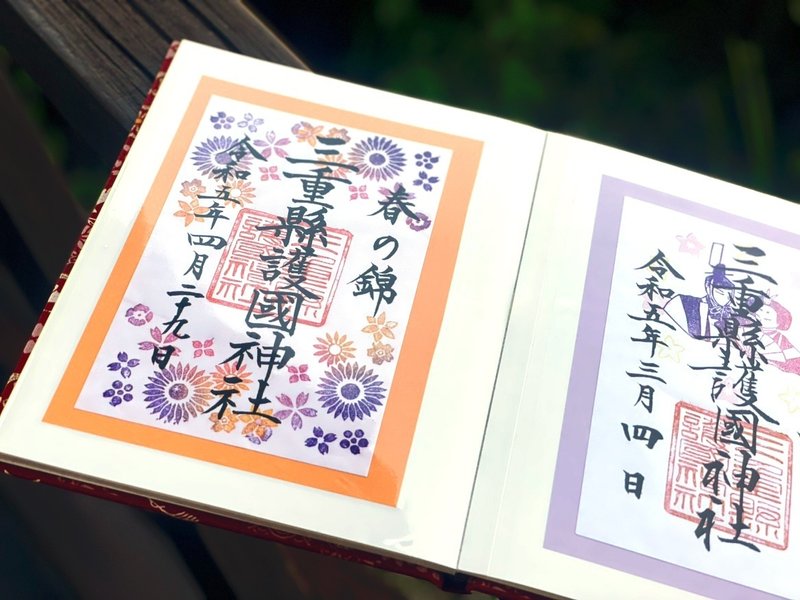 春の錦
三重縣護國神社
令和五年四月二十九日
三重縣護國神社
令和五年三月四日